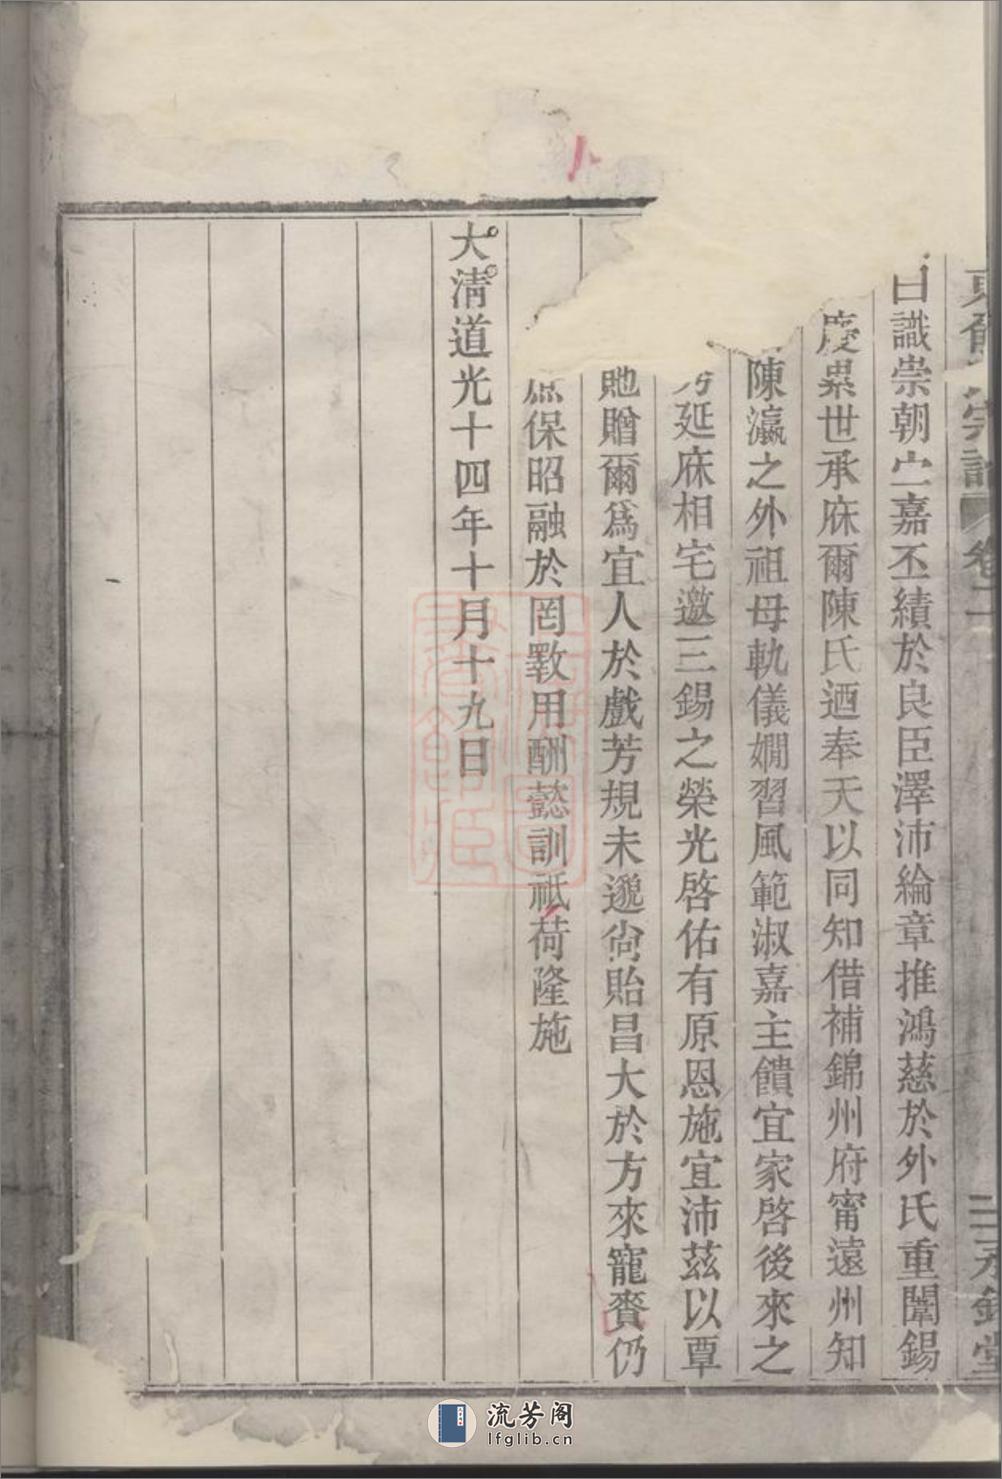 宗譜 卷二 二 永錫堂
曰識崇朝宀嘉丕績於良臣澤沛綸章推鴻慈於外氏重闈錫
慶累世承庥爾陳氏迺奉天以同知借補錦州府甯遠州知
陳瀛之外祖母軌儀嫺習風範淑嘉主饋宜家啓後來之
延庥相宅邀三錫之榮光啓佑有原恩施宜沛茲以覃
貤贈爾爲宜人於戲芳規未邈尙貽昌大於方來寵賚仍
保昭融於罔斁用酬懿訓祇荷隆施
大淸道光十四年十月十九日
流芳阁
lfglib.cn